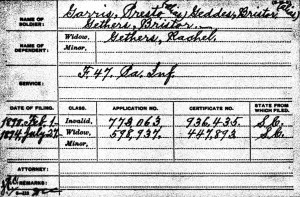 Garris, Prest Geddes, Bristor
NAME OF SOLDIER: Gethers, Bristor
NAME OF DEPENDENT: Widow, Gethers, Rachel.
Minor,
SERVICE: F 47. Inf
DATE OF FILING. CLASS. APPLICATION NO. CERTIFICATE NO. STATE FROM WHICH FILED.
Feb. 1 Invalid, 773,063 936,435. S.C.
July 27 Widow, 598,937. 447,893 S.C.
Minor,
ATTORNEY:
REMARKS: